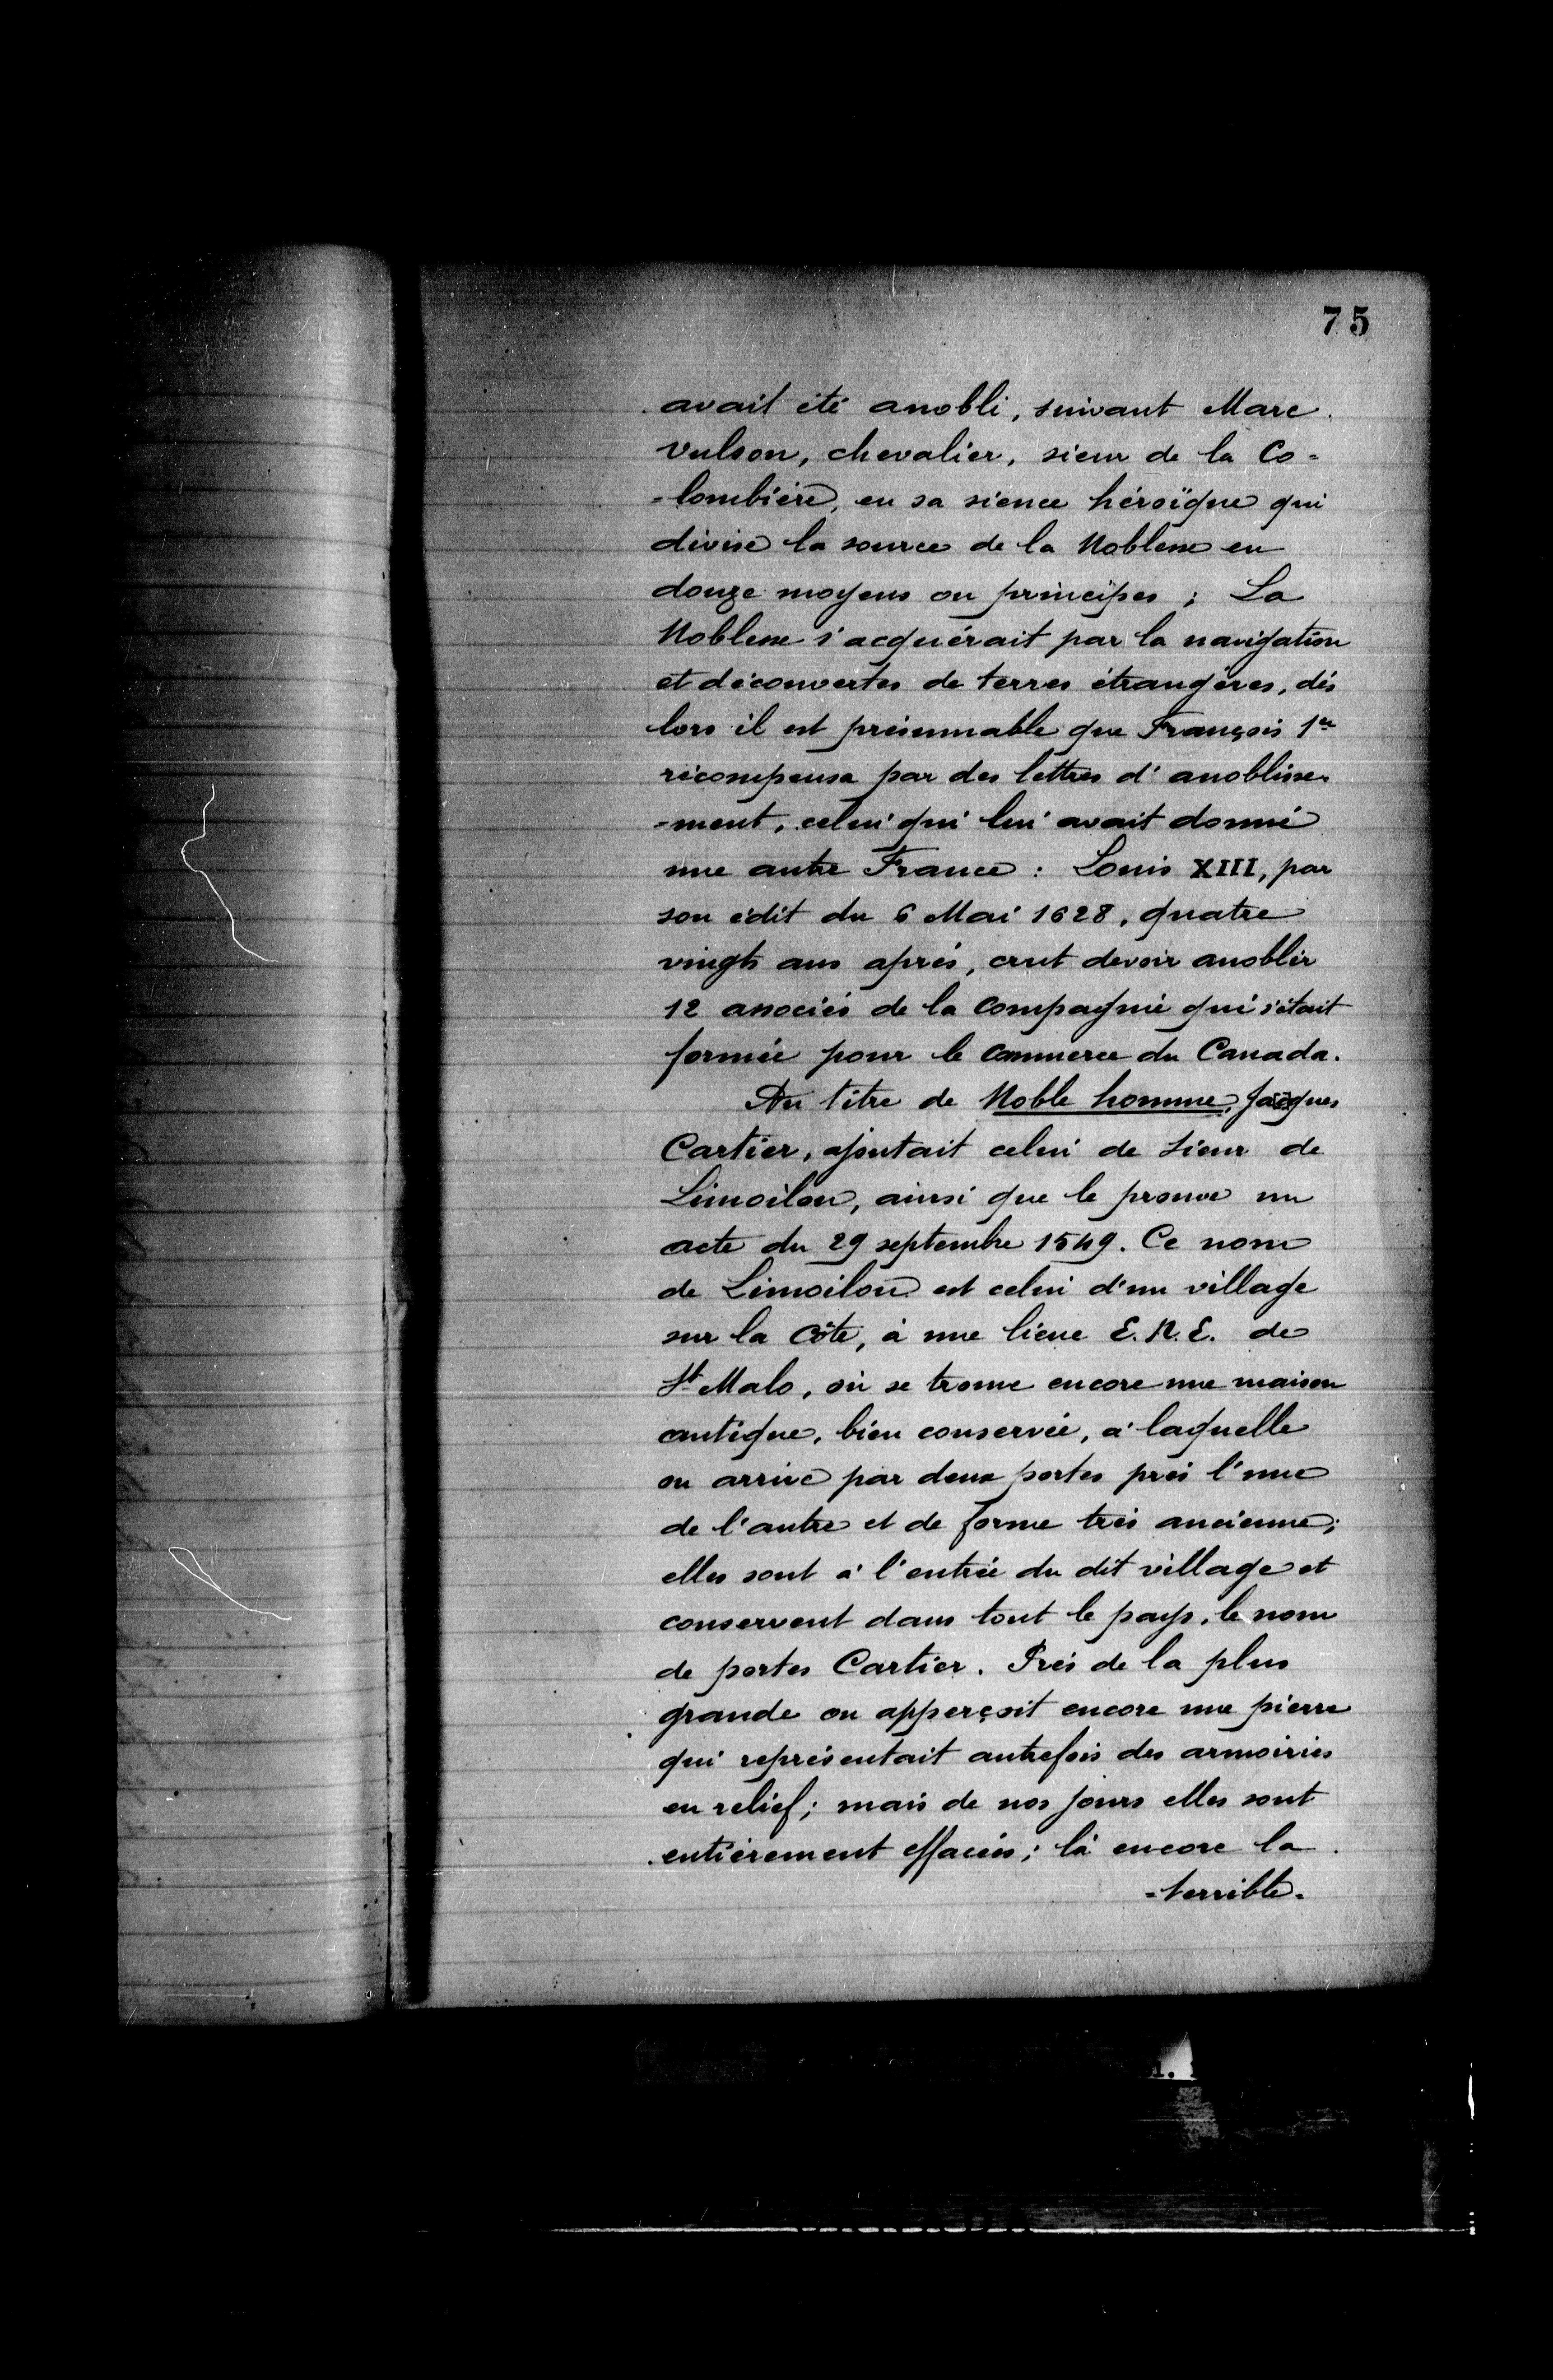 75
avait été anobli, suivant Marc
Vulson, chevalier, sieur de la Co-
-lombière, en sa sience héroïque qui
divise la source de la Noblesse en
douze moyens ou principes ; La
Noblesse s'acquérait par la navigation
et découvertes de terres étrangères, dès
lors il est présumable que François 1er
récompensa par des lettres d'anoblisse-
-ment, celui qui lui avait donné
une autre France : Louis XIII, par
son édit du 6 Mai 1628, quatre
vingts ans après, crut devoir anoblir
12 associés de la Compagnie qui s'était
formée pour le Commerce du Canada.
Au titre de Noble homme, Jacques
Cartier, ajoutait celui de Sieur de
Limoilou, ainsi que le prouve un
acte du 29 septembre 1549. Ce nom
de Limoilou est celui d'un village
sur la Côte, à une lieue E.N.E. de
St Malo, où se trouve encore une maison
antique, bien conservée, à laquelle
on arrive par deux portes près l'une
de l'autre et de forme très ancienne;
elles sont à l'entrée du dit village et
conservent dans tout le pays, le nom
de portes Cartier. Près de la plus
grande on apperçoit encore une pierre
qui représentait autrefois des armoiries
en relief; mais de nos jours elles sont
entièrement effacées; là encore la
-terrible-